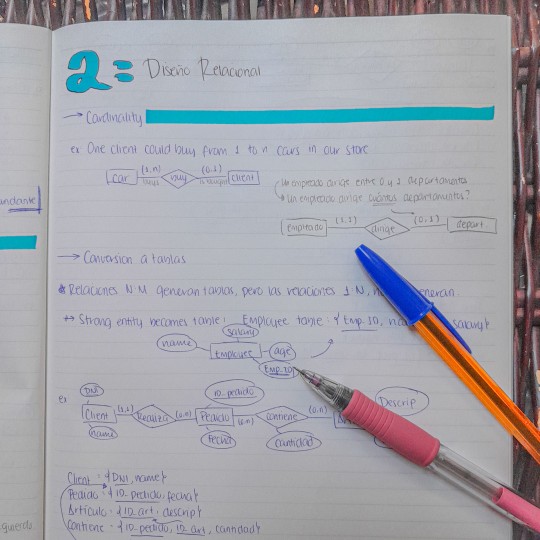 2= Diseño Relacional
→ Cardinality
ex One client could buy from 1 to n cars in our store
car (1,n) buy (0,1) client
Un empleado dirige entre 0 y 1 departamentos
* Un empleado dirige cuántos departamentos?
empleado (1,1) dirige (0,1) depart.
→ Conversion a tablas
* Relaciones N:M generan tablas, pero las relaciones 1:N, no generan
↔ Strong entity becomes table: Employee table: { Emp. ID, salary}
salary
name Employee age
Emp. ID
ex DNI id. pedido Descrip
Client (1,1) Realiza (0,n) Pedido (0,n) contiene (0,n)
name fecha cantidad
Client: {DNI, name}
Pedido: {ID_pedido, fecha}
Artículo: {ID_art, descript}
Contiene: {ID_pedido, ID_art, cantidad}